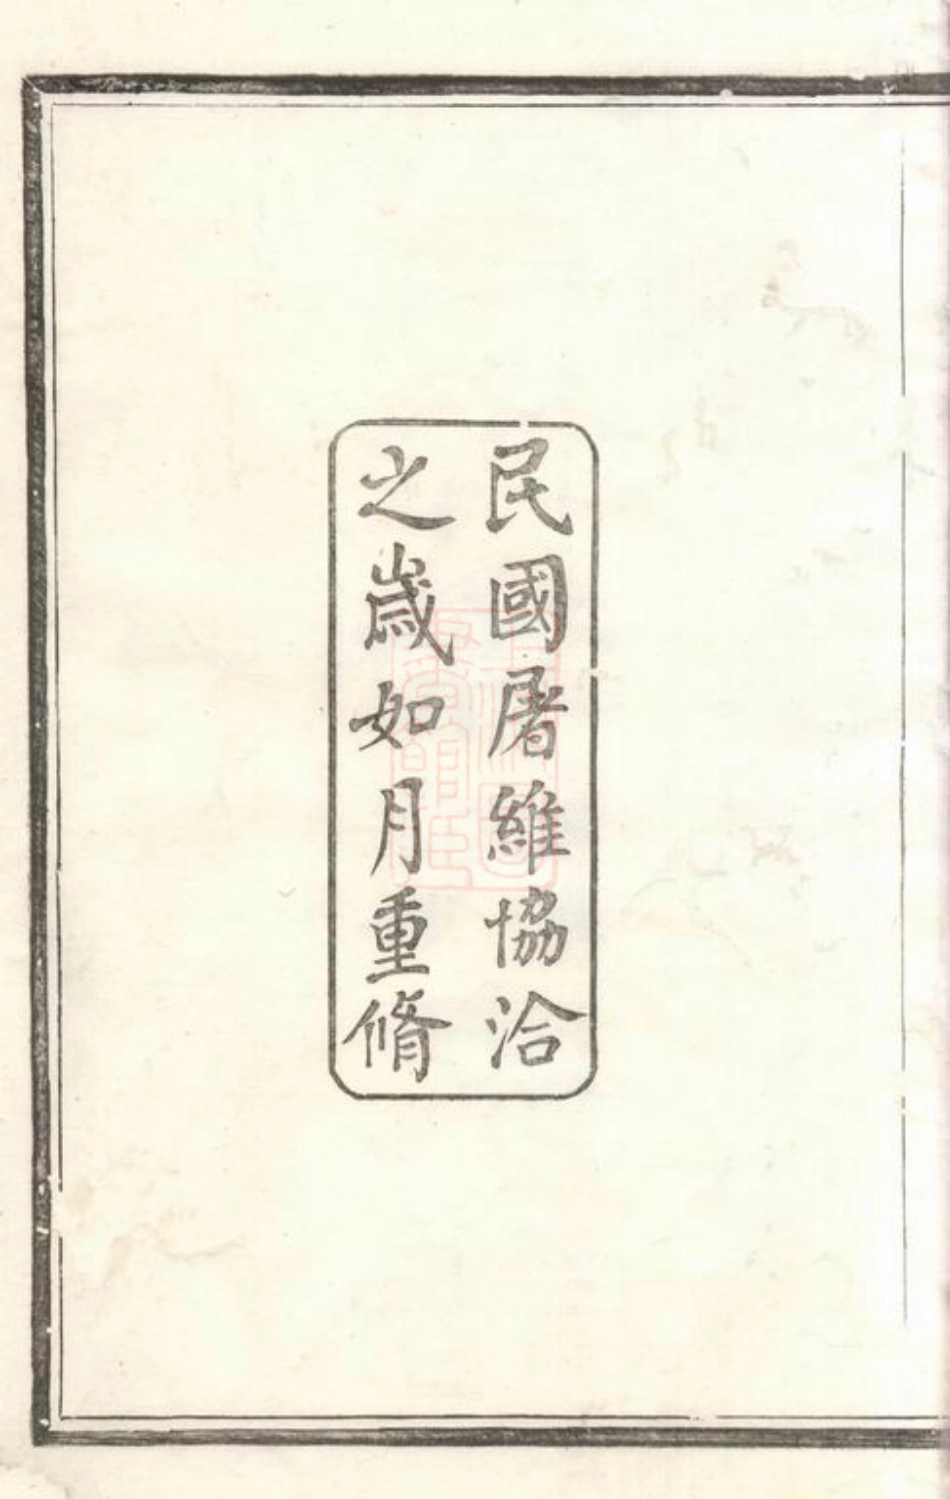 民國屠維協洽
之歲如月重脩